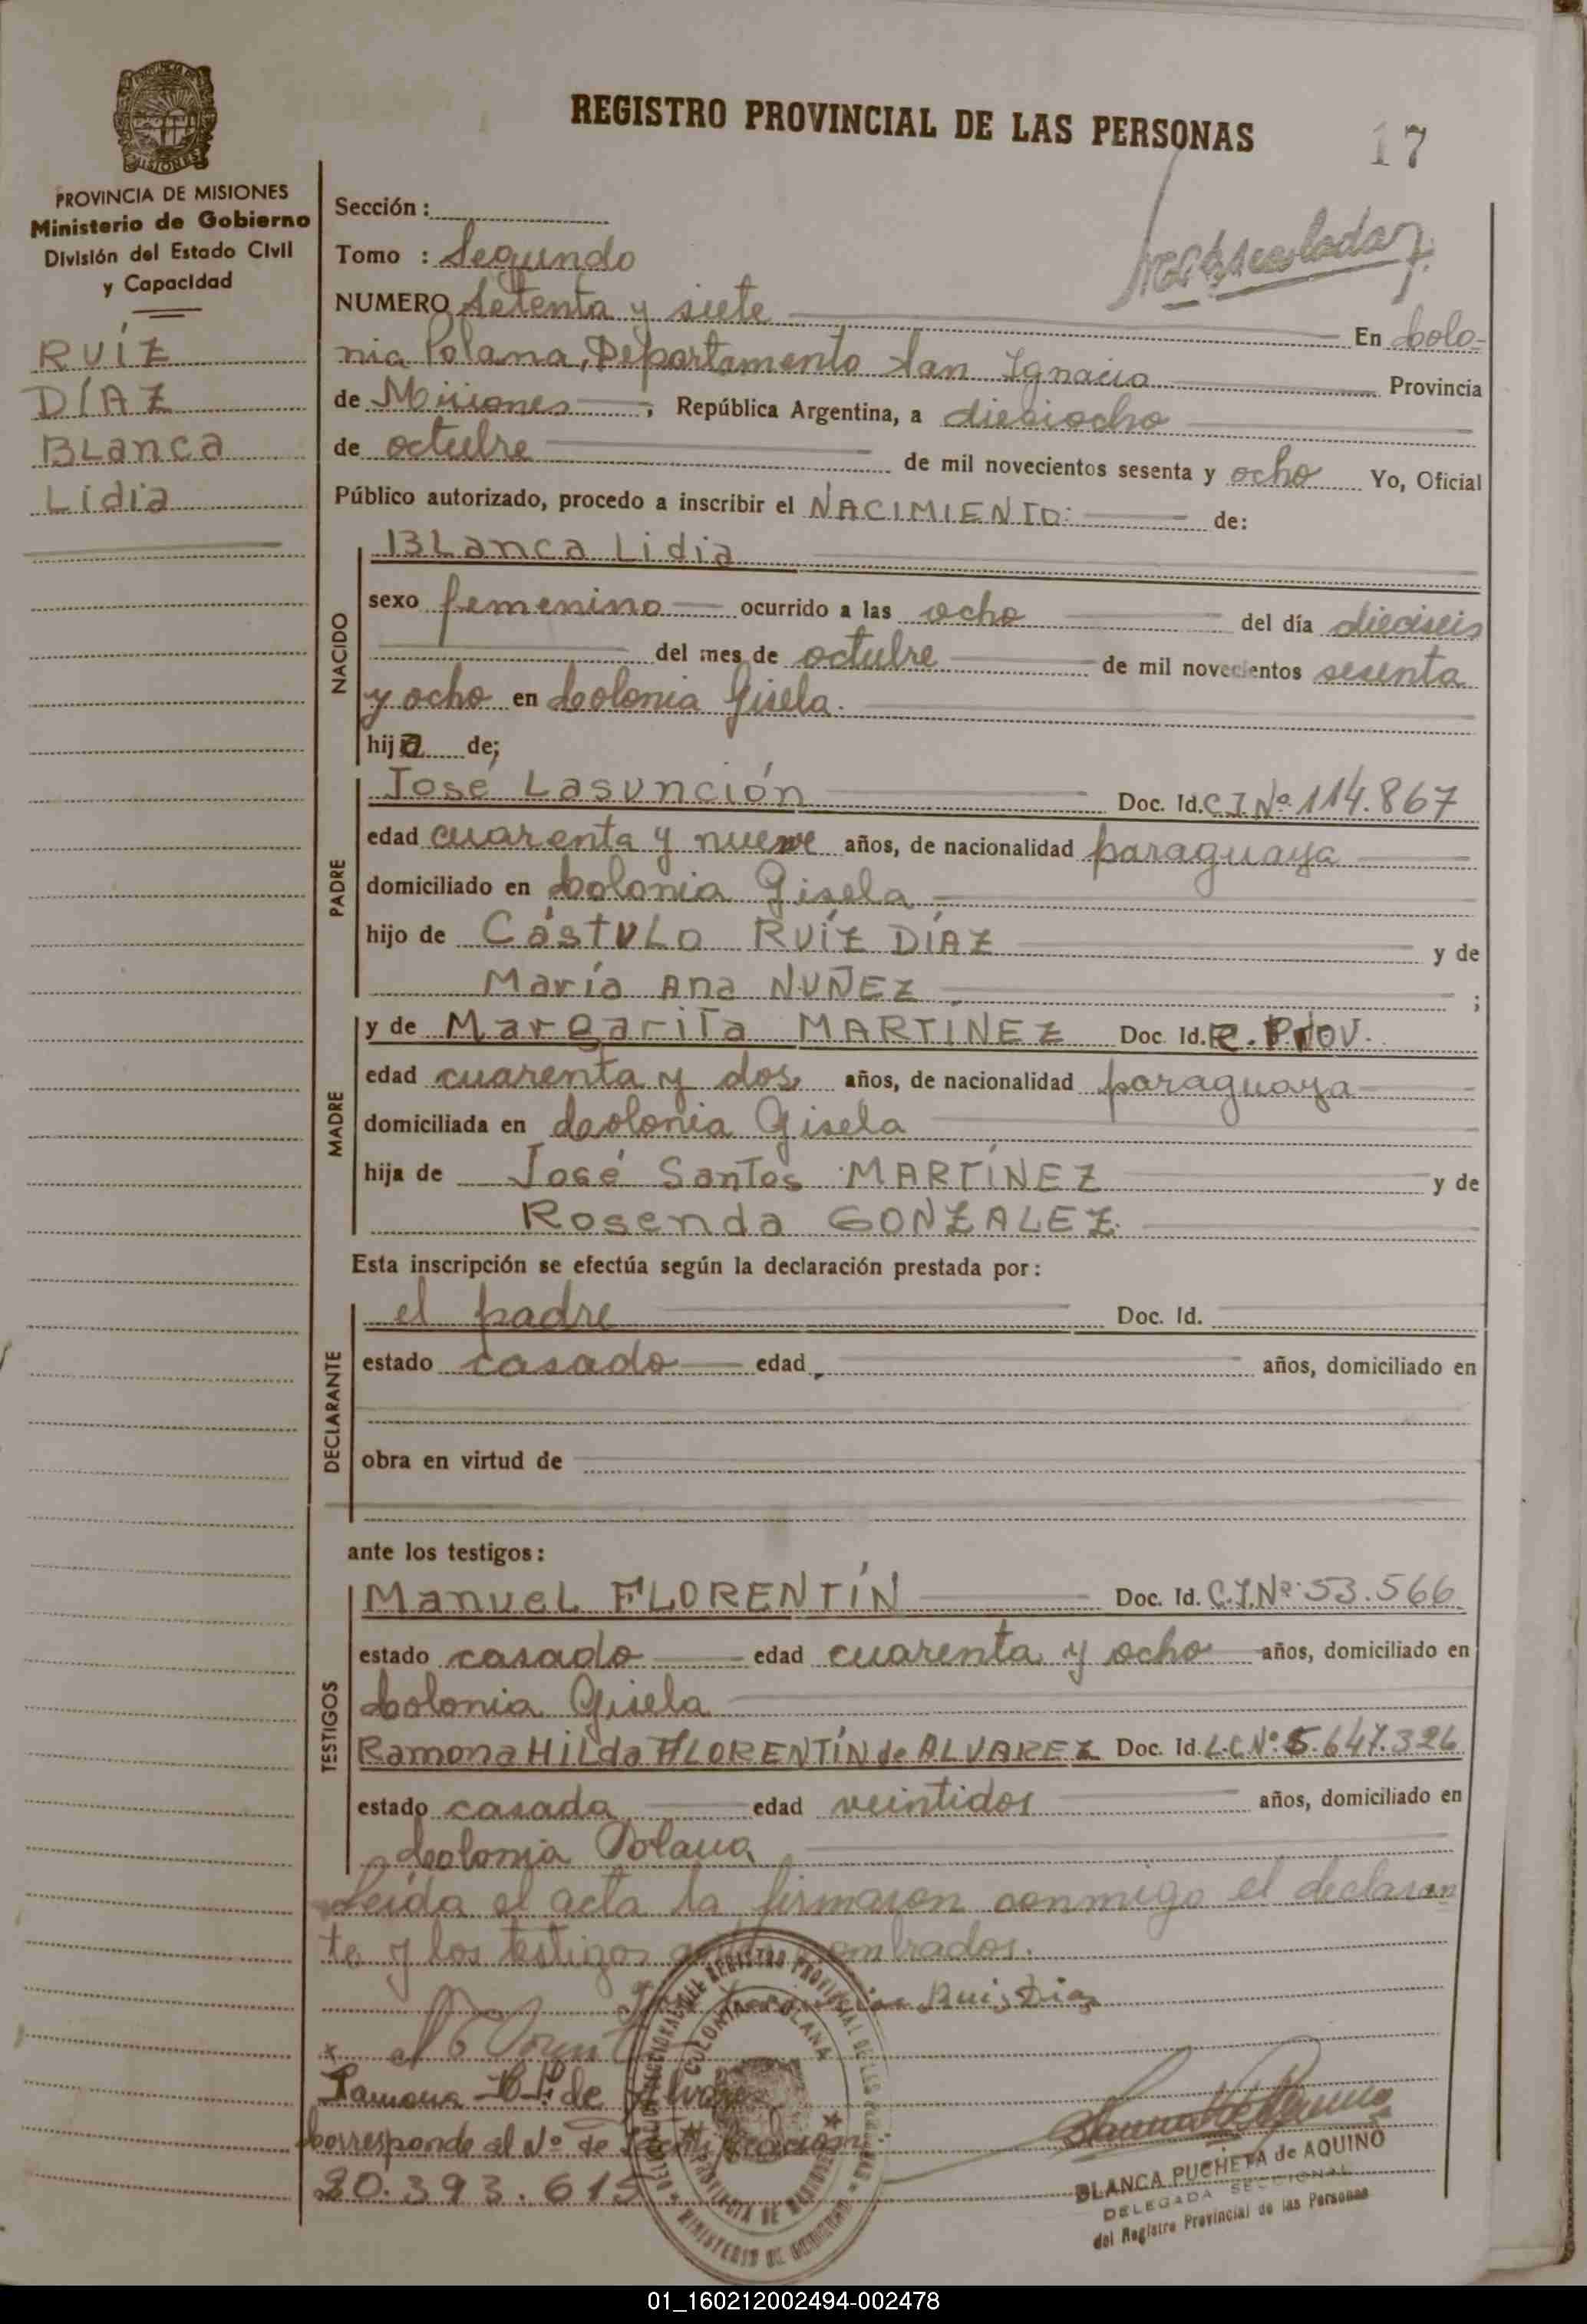 REGISTRO PROVINCIAL DE LAS PERSONAS
17
MISIONES
PROVINCIA DE MISIONES
Ministerio de Gobierno
División del Estado Civil
y Capacidad
RUÍZ
DÍAZ
BLanca
Lidia
Sección :
Tomo : Segundo
NUMERO Setenta y siete En Colo-
nia Polana, Departamento San Ignacio Provincia
de Misiones, República Argentina, a dieciocho
de octubre de mil novecientos sesenta y ocho Yo, Oficial
Público autorizado, procedo a inscribir el NACIMIENTO: de:
NACIDO
BLanca Lidia
sexo femenino ocurrido a las ocho del día dieciseis
del mes de octubre de mil novecientos sesenta
y ocho en Colonia Gisela.
hija de;
PADRE
José Lasunción Doc. Id. C.I. Nº 114.867
edad cuarenta y nueve años, de nacionalidad paraguaya
domiciliado en Colonia Gisela
hijo de CástuLo RUÍZ DÍAZ y de
María Ana NUÑEZ ;
MADRE
y de Margarita MARTÍNEZ Doc. Id. R. Prov.
edad cuarenta y dos años, de nacionalidad paraguaya
domiciliada en Colonia Gisela
hija de José Santos MARTÍNEZ y de
Rosenda GONZALEZ.
Esta inscripción se efectúa según la declaración prestada por :
DECLARANTE
el padre Doc. Id.
estado casado edad años, domiciliado en
obra en virtud de
ante los testigos :
TESTIGOS
ManueL FLORENTÍN Doc. Id. C.I. Nº 53.566
estado casado edad cuarenta y ocho años, domiciliado en
Colonia Gisela
Ramona HiLda FLORENTÍN de ALVAREZ Doc. Id. L.C. Nº 5.647.326
estado casada edad veintidos años, domiciliado en
Colonia Polana
Leída el acta la firmaron conmigo el declaran
te y los testigos nombrados.
Ruis Dias
Ramona H F. de Alvarez
Corresponde al Nº de Identificación
20.393.615
COLONIA POLANA
PROVINCIA DE MISIONES
MINISTERIO DE GOBIERNO
BLANCA PUCHETA de AQUINO
DELEGADA SECCIONAL
del Registro Provincial de las Personas
01_160212002494-002478